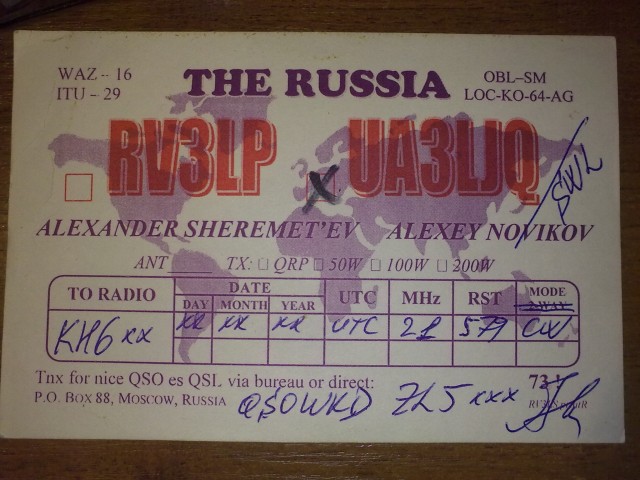 WAZ – 16
ITU – 29
THE RUSSIA
OBL–SM
LOC-KO-64-AG
RV3LP X UA3LJQ
/SWL
ALEXANDER SHEREMET'EV ALEXEY NOVIKOV
ANT ____ TX: □ QRP □ 50W □ 100W □ 200W
TO RADIO DATE UTC MHz RST MODE
DAY MONTH YEAR 2WAY
KH6xx xx xx xx UTC 21 579 CW
Tnx for nice QSO es QSL via bureau or direct:
P.O. BOX 88, MOSCOW, RUSSIA
QSO WKD ZL5xxx
73!